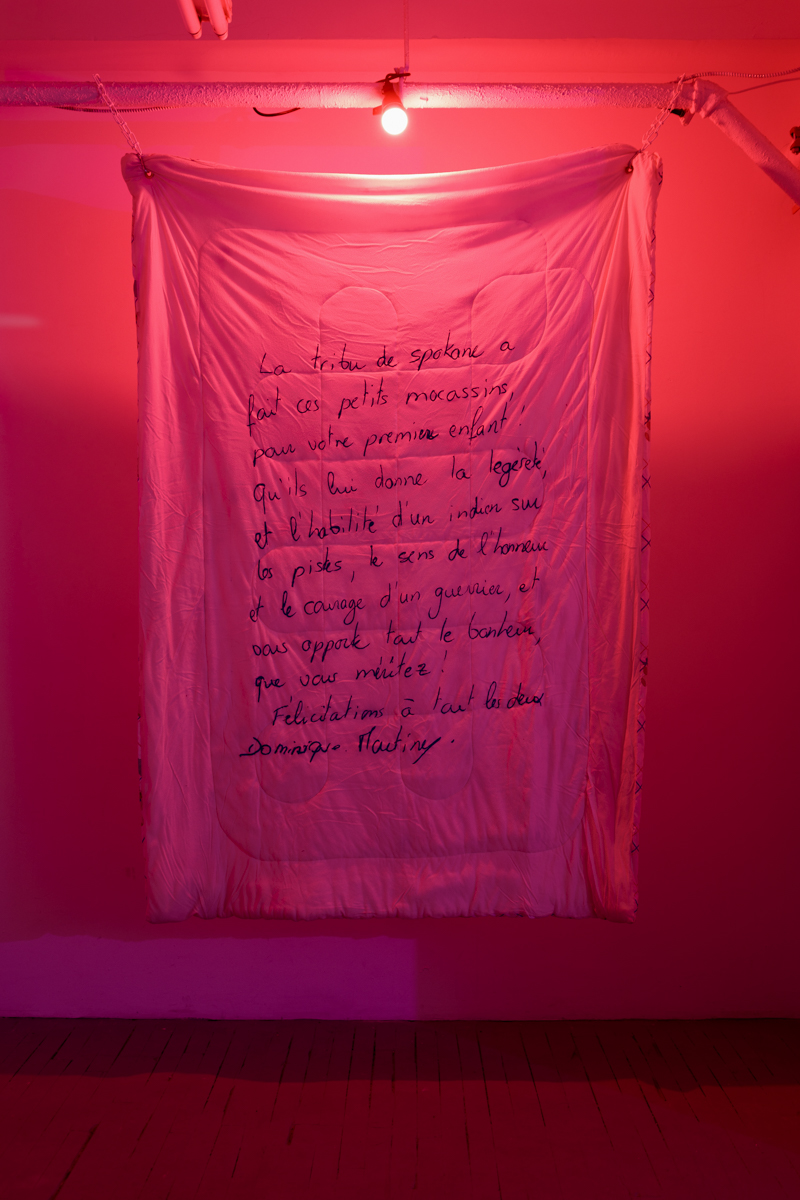 La tribu de spokane a
fait ces petits mocassins,
pour votre premier enfant !
Qu'ils lui donne la légèreté,
et l'habilité d'un indien sur
les pistes, le sens de l'honneur
et le courage d'un guerrier, et
vous apporte tout le bonheur,
que vous méritez !
Félicitations à tout les deux
Dominique. Martiney.